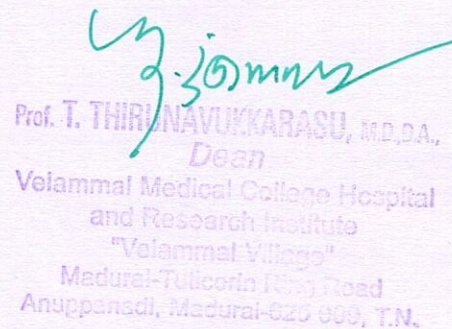 Prof. T. THIRUNAVUKKARASU, M.D,D.A.,
Dean
Velammal Medical College Hospital
and Research Institute
"Velammal Village"
Madurai-Tuticorin Ring Road
Anuppanadi, Madurai-625 009, T.N.